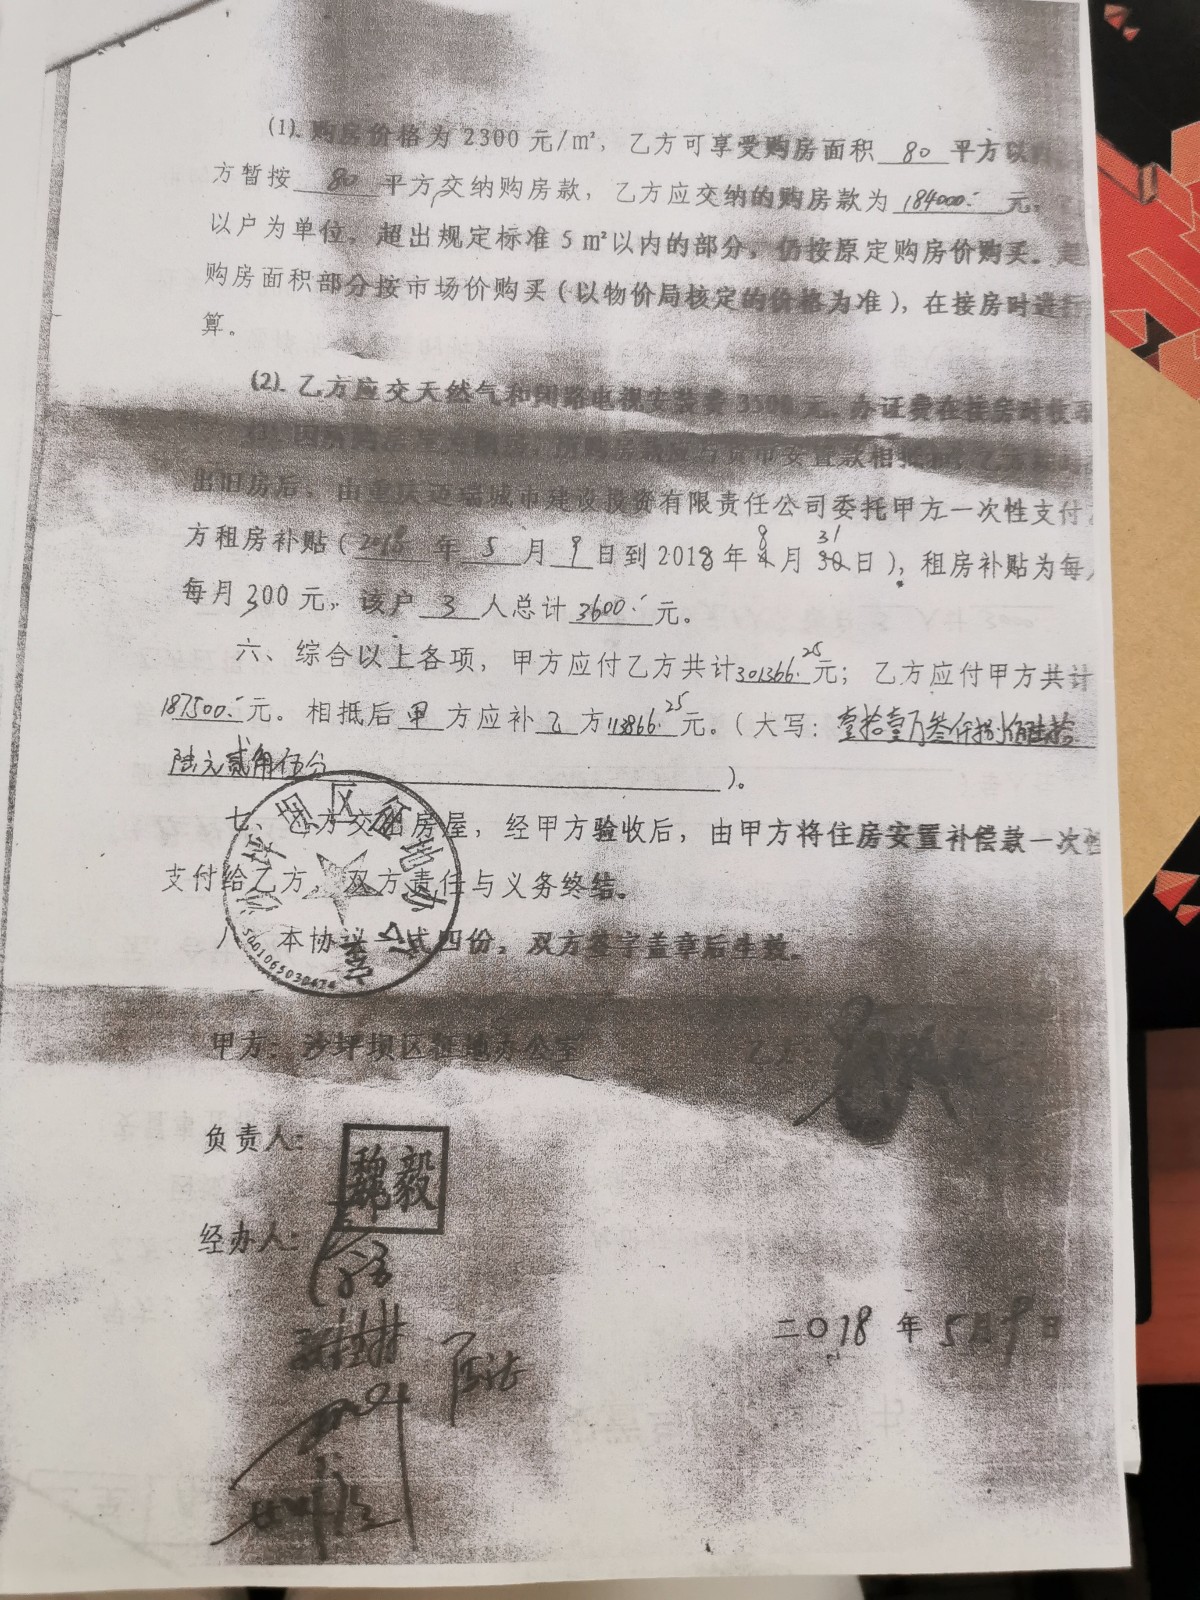 (1). 购房价格为 2300 元/㎡, 乙方可享受购房面积 80 平方以
方暂按 80 平方交纳购房款, 乙方应交纳的购房款为 184000.- 元,
以户为单位, 超出规定标准 5 ㎡以内的部分, 仍按原定购房价购买。超
购房面积部分按市场价购买 (以物价局核定的价格为准), 在接房时进行
算。
(2). 乙方应交天然气和闭路电视安装费 3500 元。办证费在接房时收取
(3). 因所购房屋是期房, 所购房款应与货币安置款相抵扣, 乙方
出旧房后, 由重庆迈瑞城市建设投资有限责任公司委托甲方一次性支付
方租房补贴 (2018 年 5 月 9 日到 2018 年 8 月 31 日), 租房补贴为每人
每月 300 元, 该户 3 人总计 3600.- 元。
六、综合以上各项, 甲方应付乙方共计 301366.25 元; 乙方应付甲方共计
187500.- 元。相抵后 甲 方应补 乙 方 113866.25 元。(大写: 壹拾壹万叁仟捌佰陆拾
陆元贰角伍分 )。
七、乙方交出房屋, 经甲方验收后, 由甲方将住房安置补偿款一次性
支付给乙方, 双方责任与义务终结。
八、本协议一式四份, 双方签字盖章后生效。
5001065030474
甲方: 沙坪坝区征地办公室 乙方:
负责人: 魏毅
经办人:
二〇18 年 5月9日